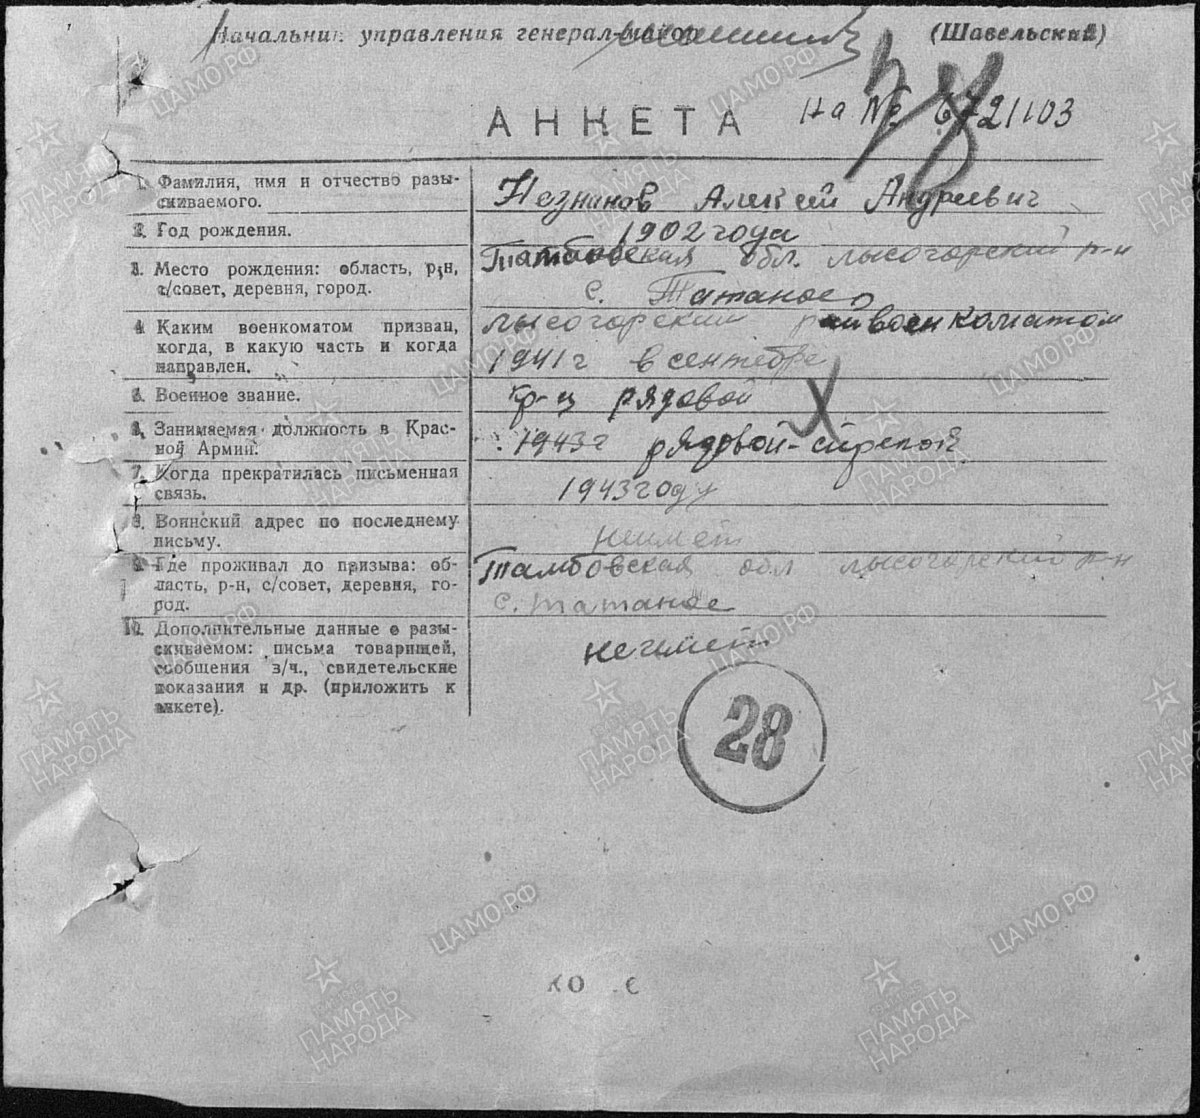 Начальник управления генерал-майор (Шавельский)
АНКЕТА На № 6721103
1. Фамилия, имя и отчество разы-
скиваемого.
Незнанов Алексей Андреевич
2. Год рождения.
1902 года
3. Место рождения: область, р-н,
с/совет, деревня, город.
Тамбовская обл. лысогорский р-н
с. Татаное
4. Каким военкоматом призван,
когда, в какую часть и когда
направлен.
лысогорским райвоенкоматом
1941 г в сентебре
5. Военное звание.
кр-ц рядовой
6. Занимаемая должность в Крас-
ной Армии.
1943 г рядовой-стрелок
7. Когда прекратилась письменная
связь.
1943 году
8. Воинский адрес по последнему
письму.
неимет
9. Где проживал до призыва: об-
ласть, р-н, с/совет, деревня, го-
род.
Тамбовская обл лысогорский р-н
с. татаное
10. Дополнительные данные о разы-
скиваемом: письма товарищей,
сообщения з/ч., свидетельские
показания и др. (приложить к
анкете).
неимет
28
ПАМЯТЬ НАРОДА
ЦАМО РФ